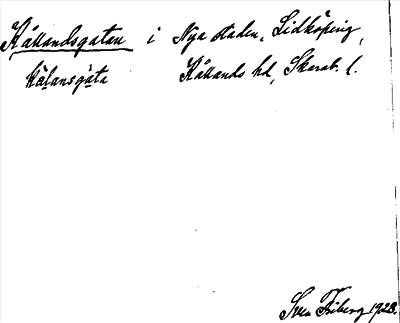 Kållandsgatan i Nya staden, Lidköping,
kålansgáta Kållands hd, Skarab. l.
Sven Friberg 1923.